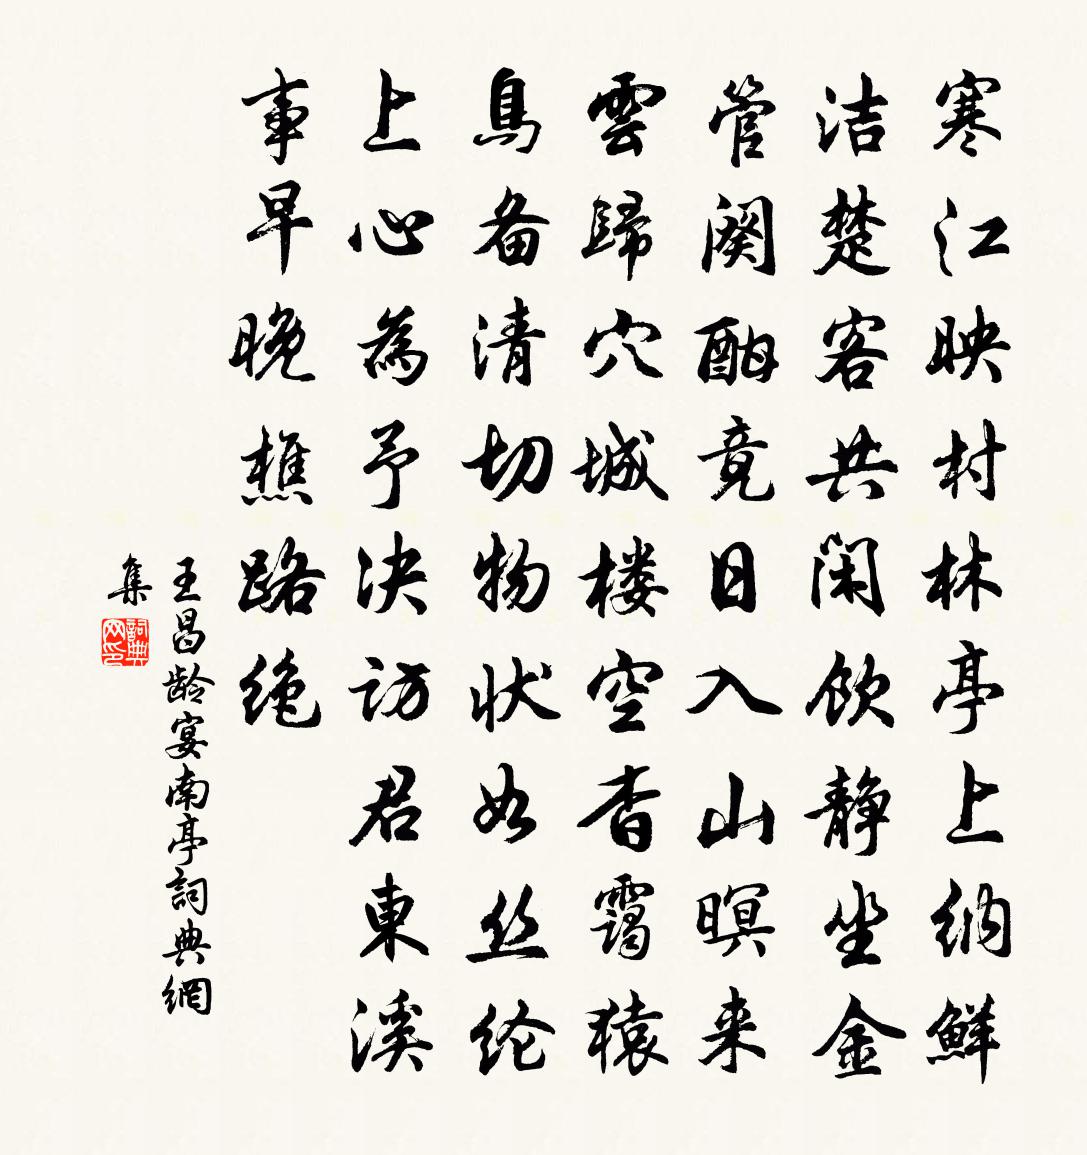 寒江映村林亭上纳鲜
洁楚客共闲饮静坐金
管阕酣竟日入山暝来
雲歸穴城楼空杳靄猿
鳥备清切物状如丝纶
上心為予决访君東溪
事早晚樵路绝
王昌龄宴南亭詞典網
集
詞典网印